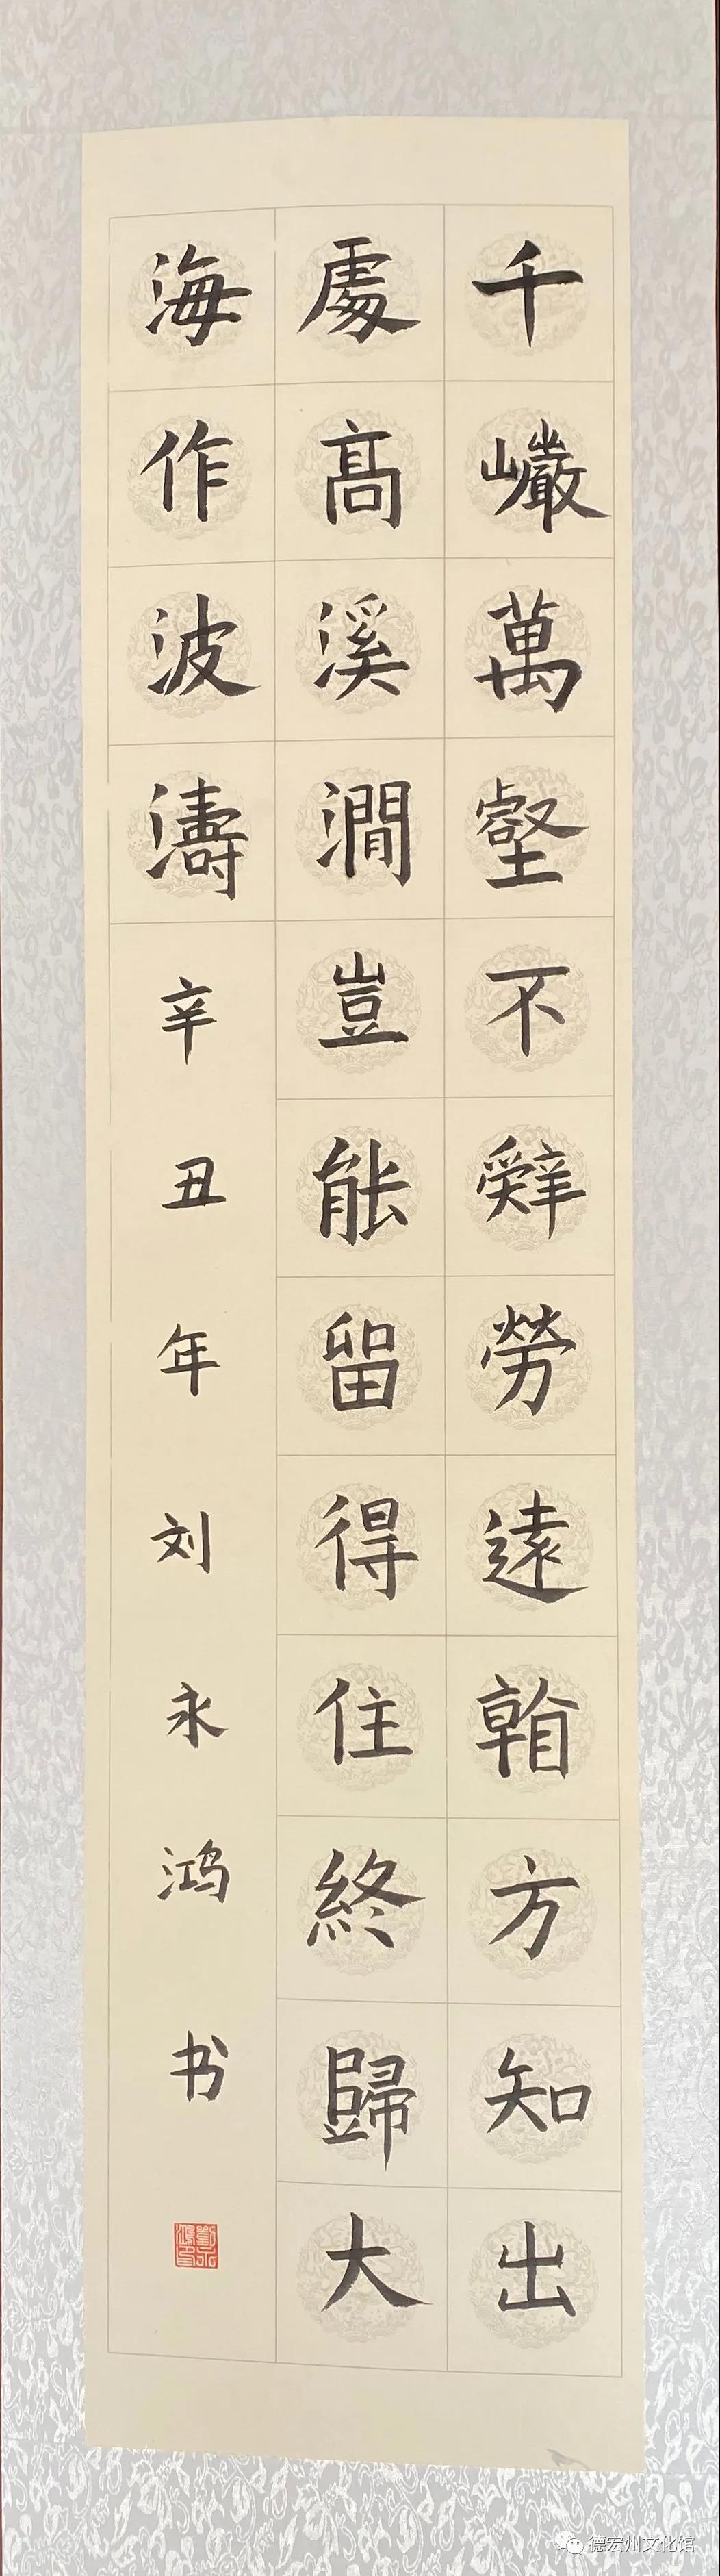 千巖萬壑不辭勞遠看方知出
處高溪澗豈能留得住終歸大
海作波濤辛丑年刘永鸿书
劉永鴻印
德宏州文化馆